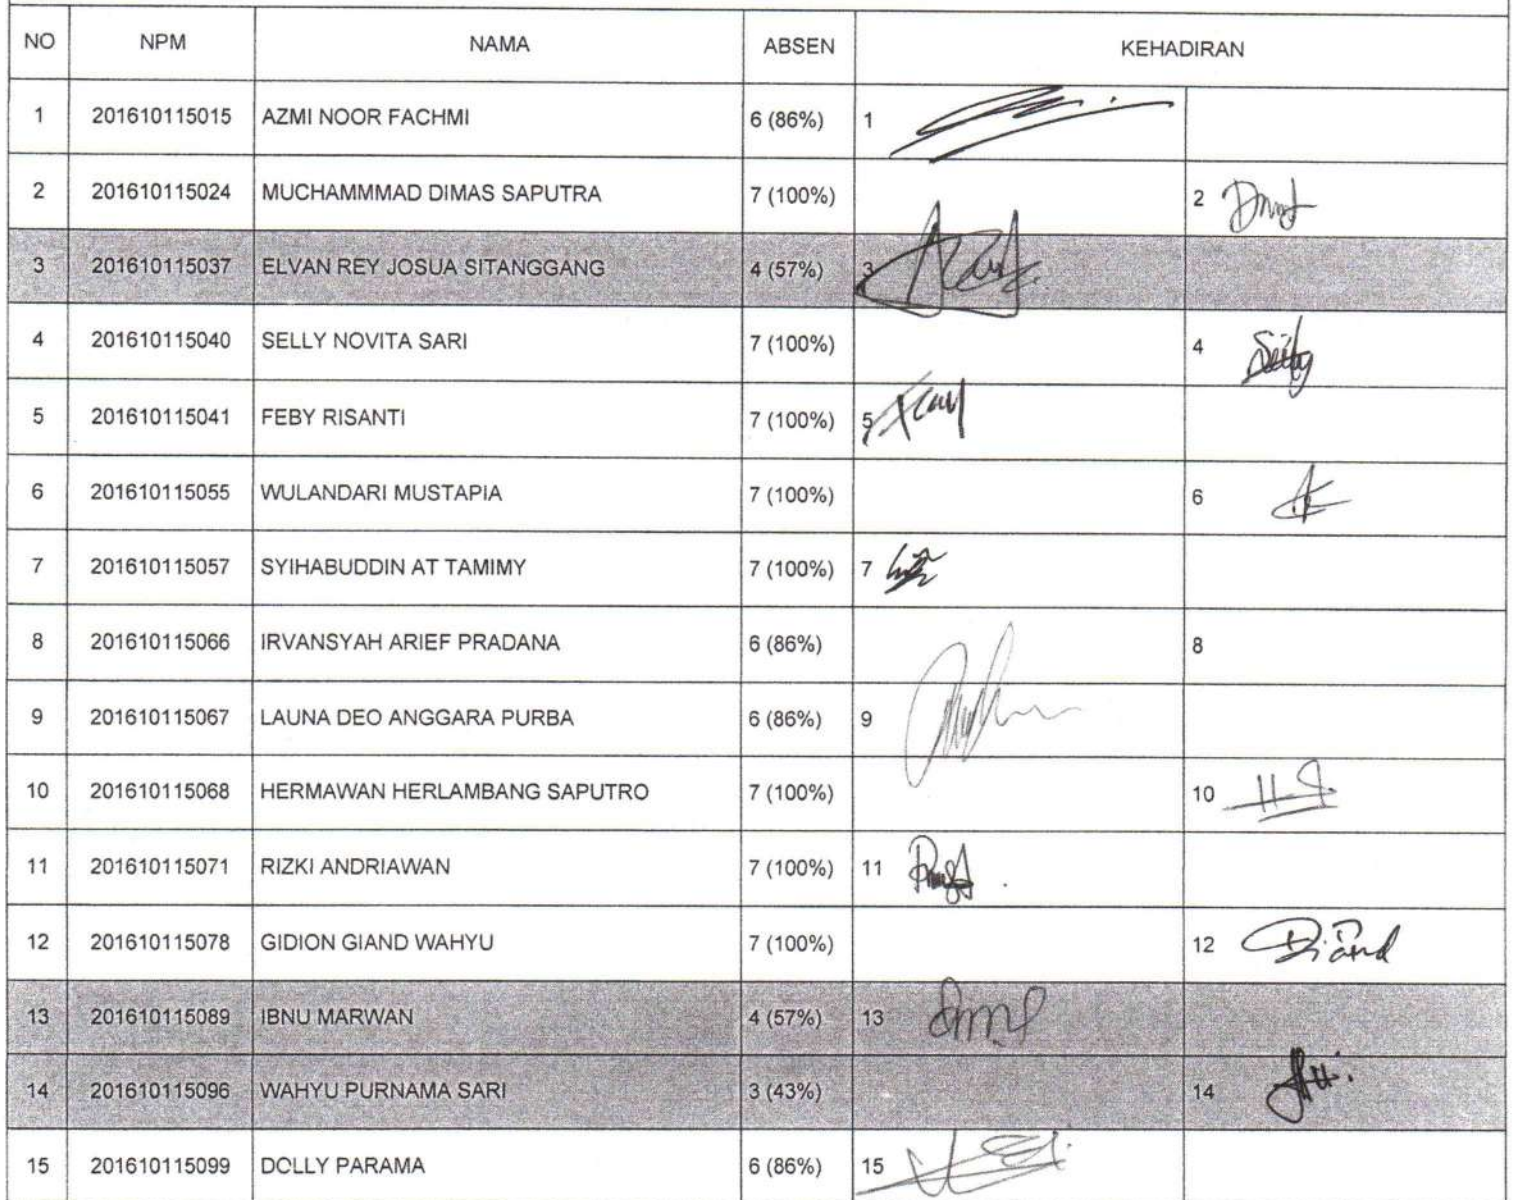 NO NPM NAMA ABSEN KEHADIRAN
1 201610115015 AZMI NOOR FACHMI 6 (86%) 1
2 201610115024 MUCHAMMMAD DIMAS SAPUTRA 7 (100%) 2
3 201610115037 ELVAN REY JOSUA SITANGGANG 4 (57%) 3
4 201610115040 SELLY NOVITA SARI 7 (100%) 4 Selly
5 201610115041 FEBY RISANTI 7 (100%) 5
6 201610115055 WULANDARI MUSTAPIA 7 (100%) 6
7 201610115057 SYIHABUDDIN AT TAMIMY 7 (100%) 7
8 201610115066 IRVANSYAH ARIEF PRADANA 6 (86%) 8
9 201610115067 LAUNA DEO ANGGARA PURBA 6 (86%) 9
10 201610115068 HERMAWAN HERLAMBANG SAPUTRO 7 (100%) 10
11 201610115071 RIZKI ANDRIAWAN 7 (100%) 11
12 201610115078 GIDION GIAND WAHYU 7 (100%) 12
13 201610115089 IBNU MARWAN 4 (57%) 13
14 201610115096 WAHYU PURNAMA SARI 3 (43%) 14
15 201610115099 DOLLY PARAMA 6 (86%) 15